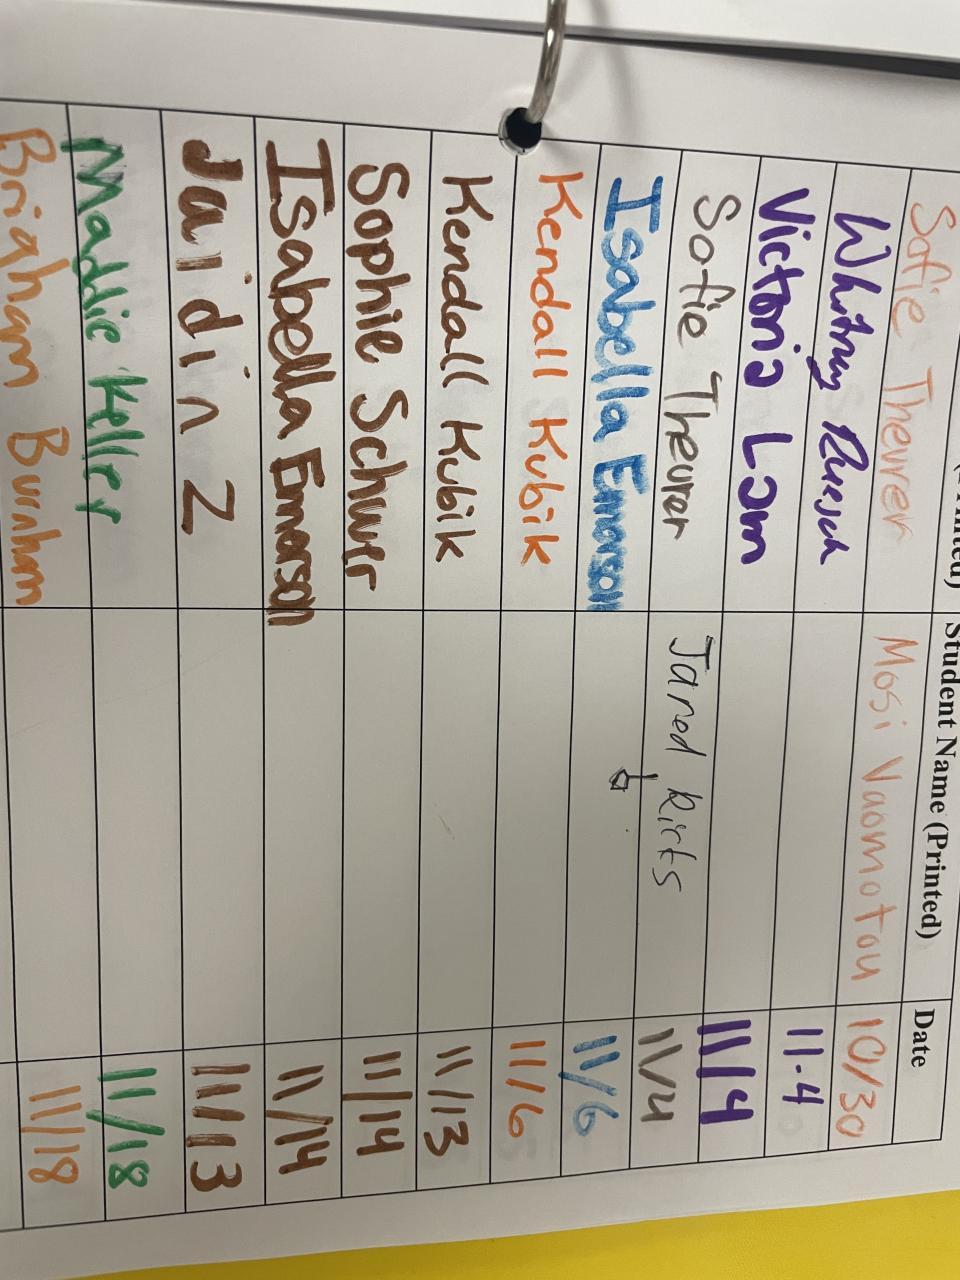 (Printed) Student Name (Printed) Date
Sofie Theurer Mosi Vaomotou 10/30
Whitney Ruesch 11.4
Victoria Lam 11/4
Sofie Theurer Jared Kirts 11/4
Isabella Emerson 11/6
Kendall Kubik 11/6
Kendall Kubik 11/13
Sophie Schurr 11/14
Isabella Emerson 11/14
Jaidin Z 11/13
Maddie Kelley 11/18
Brigham Burnham 11/18